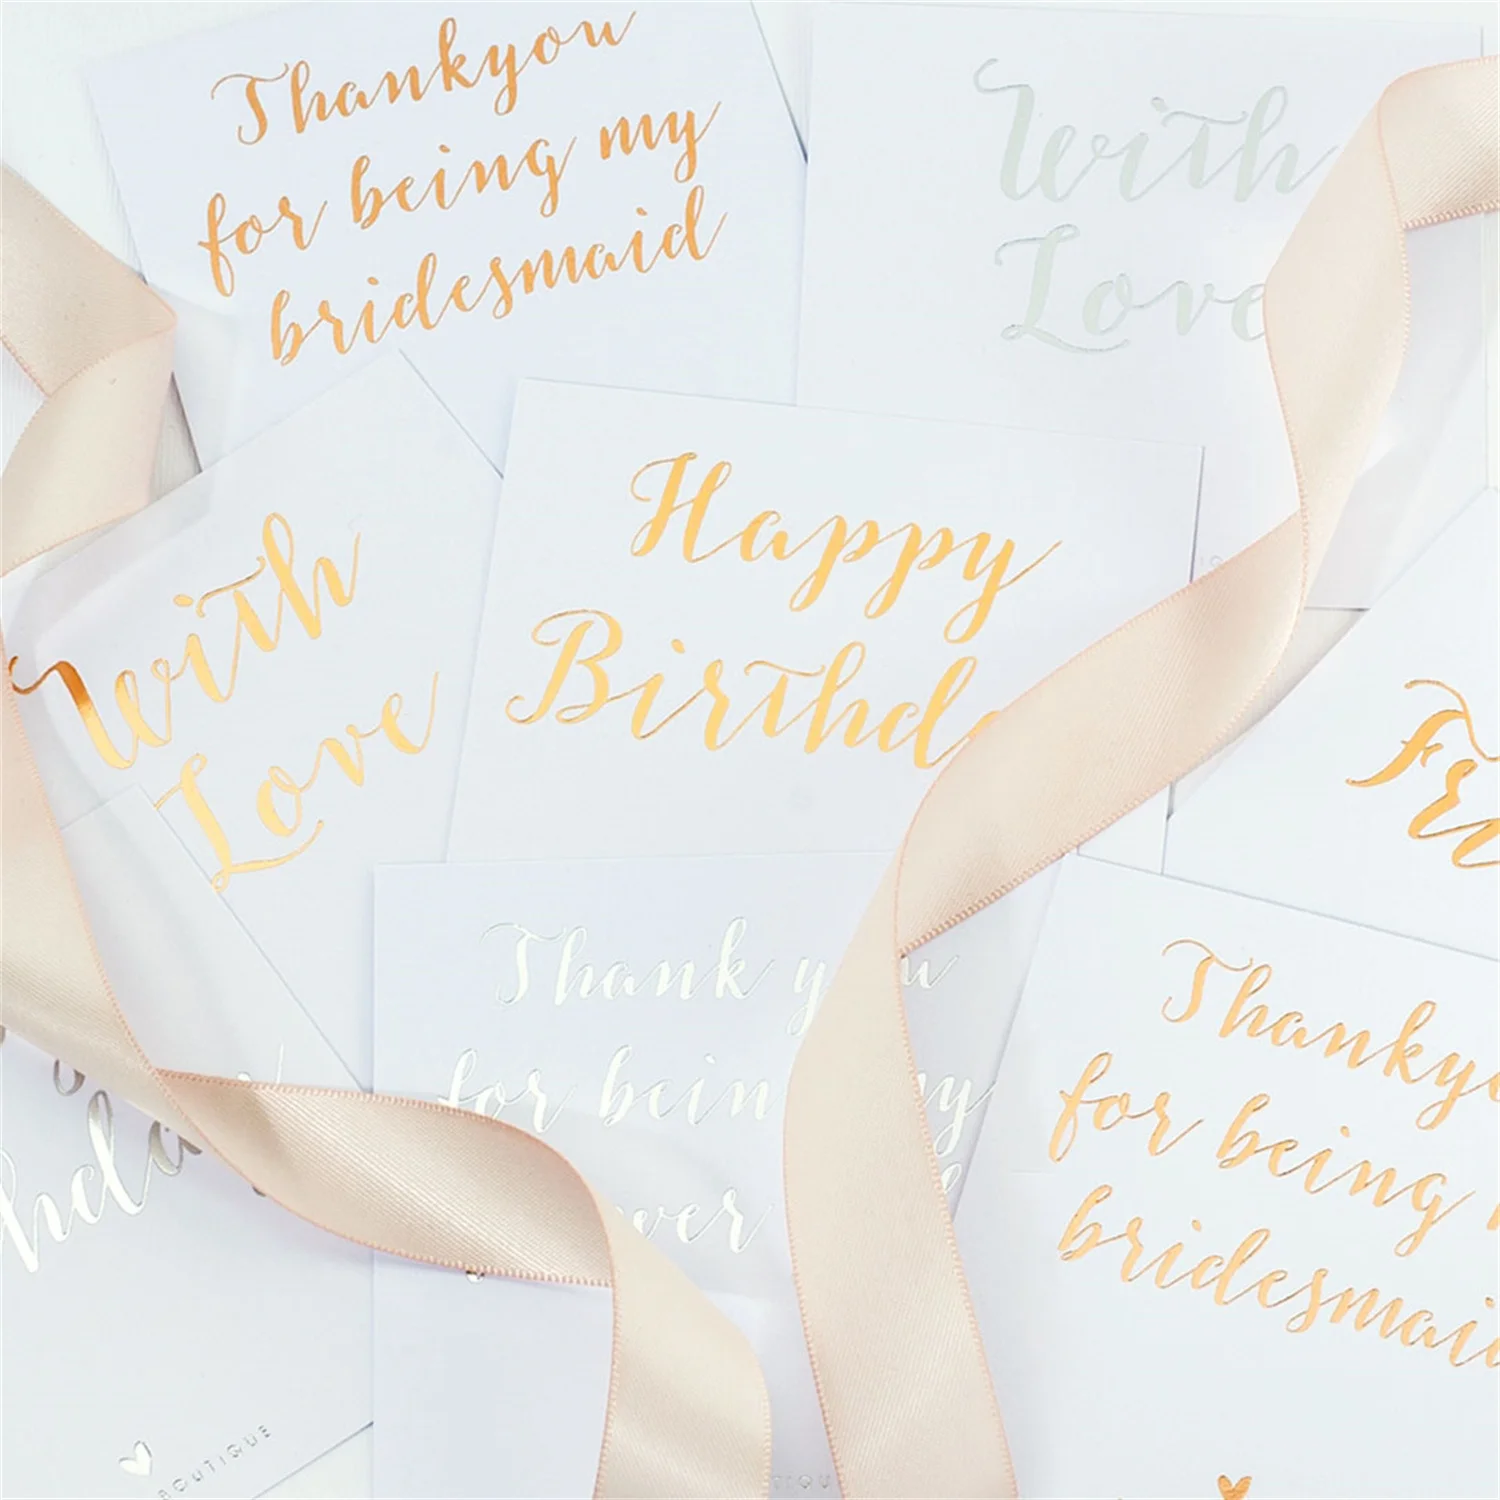 Thankyou
for being my
bridesmaid
With
Love
With
Love
Happy
Birthd
Fri
Thank y u
for bein y
wer
Thankyo
for being
bridesmai
hday
BOUTIQUE
TIQU